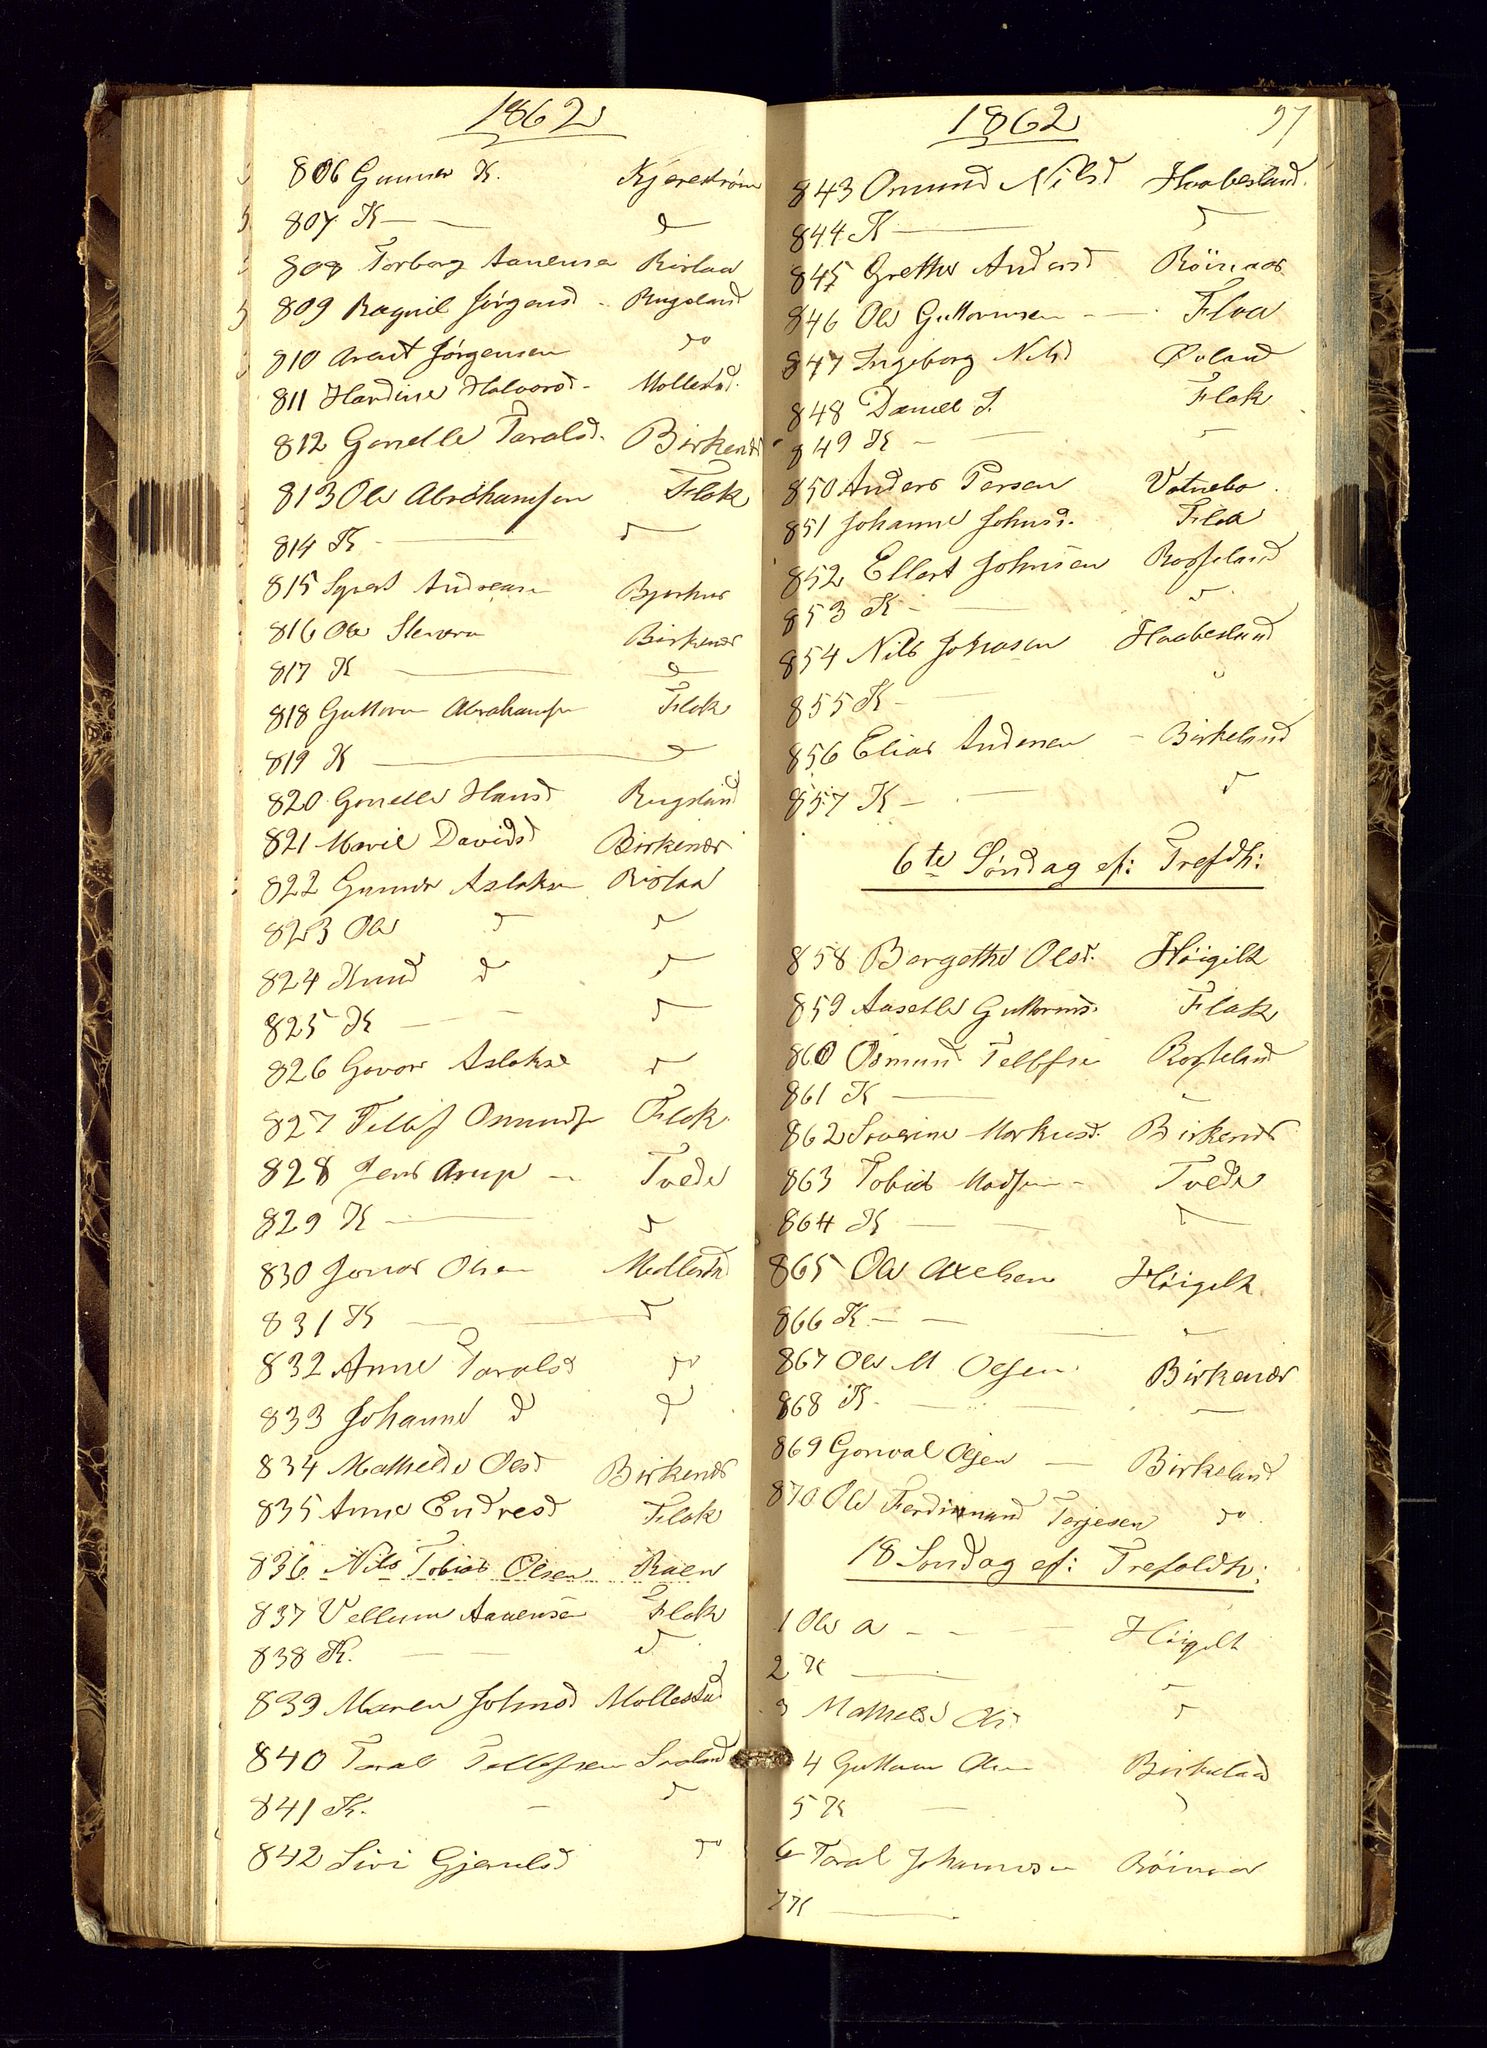 1862
806 Gunner K. Kjerestrøm
807 K — d
808 Torborg Aanensen Rislaa
809 Ragnil Jørgensd - Rugsland
810 Arent Jørgensen do
811 Hardine Halvorsd - Mollestad
812 Gonelle Taralsd. Birkenes
813 Ole Abrahamsen Flak
814 K — d
815 Syvert Andreasen Bjorhus
816 Ole Birkenes
817 K — d
818 Guttorm Abrahamsen Flak
819 K — d
820 Gonelle Hansd Rugsland
821 Maril Davidsd Birkenes
822 Gunder Aslaksen Rislaa
823 Ole d d
824 Knud d d
825 K — d
826 Govor Aslaksd d
827 Tellef Osmundsen Flak
828 Jens Arup — Tvede
829 K — d
830 Jonas Olsen Mollestad
831 K — d
832 Anne Taralsd do
833 Johanne d d
834 Mathilde Olsd Birkenes
835 Anne Endresd Flak
836 Nils Tobias Olsen Raen
837 Vellum Aanensen Flak
838 K. d
839 Maren Johnsd Mollestad
840 Taral Tellefsen
841 K. — d
842 Siri Gjerulsd do
1862 97
843 Omund Nilsd Haabesland.
844 K — d
845 Grethe Andersd Röinaas
846 Ole Guttormsen — Flaa
847 Ingeborg Nilsd Øvland
848 Daniel J. Flak
849 K — d
850 Anders Persen Vatnebo
851 Johanne Johnsd. Flaa
852 Ellert Johnsen Rosseland
853 K — d
854 Nils Johnsen Haabesland
855 K —
856 Elias Andersen — Birkeland
857 K — d
6te Søndag ef: Trefdh:
858 Bergethe Olsd. Höigilt
859 Aaselle Guttormsd. Flak
860 Osmund Tellefsen Rosseland
861 K —
862 Severine Markusd. Birkenes
863 Tobias Madsen — Tvede
864 K — d
865 Ole Axelsen Höigilt
866 K. —
867 Ole M Olsen Birkenes
868 K. —
869 Gonval Olsen — Birkeland
870 Ole Ferdinnand Terjesen do
18 Søndag ef: Trefoldh:
1 Ole A — Höigilt
2 K —
3 Mathilde Ols. d
4 Guttorm Olsen Birkeland
5 K —
6 Taral Johannesen Röinaas
7 K —